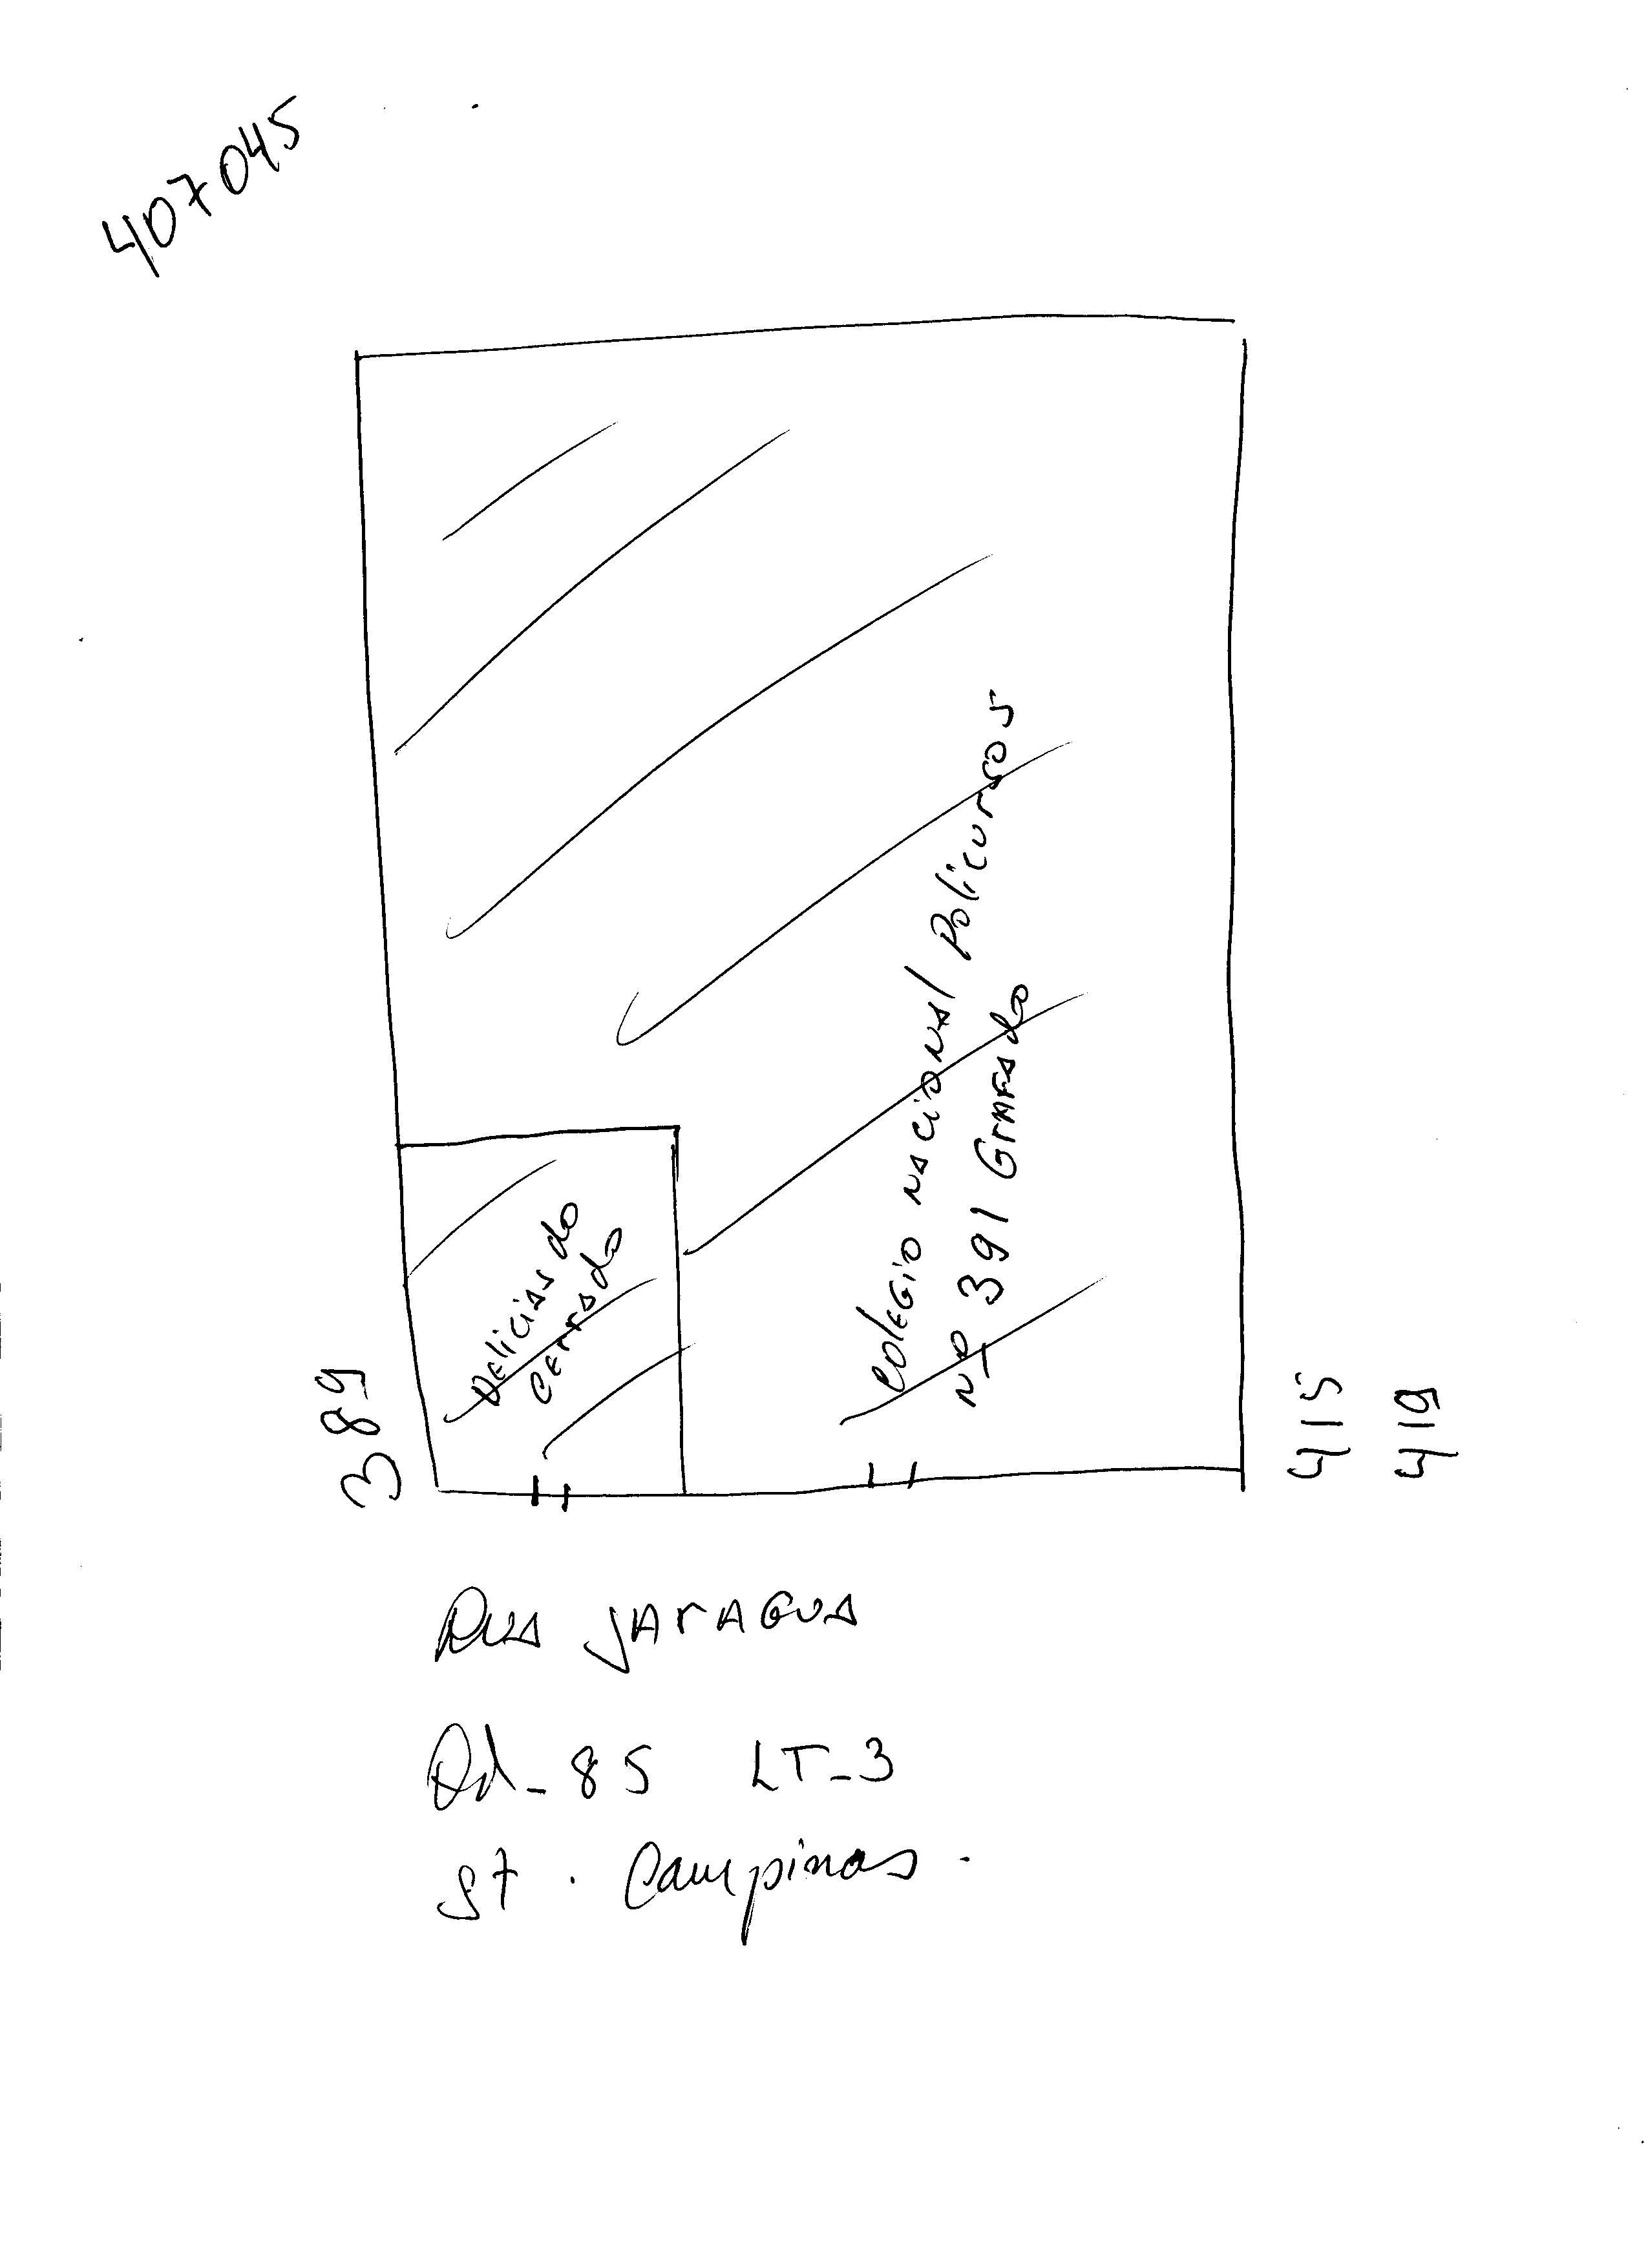 407045
Delicias do
cerrado
colegio nacional policursos
Nº 391 Grafado
389
415
419
Rua Jaragua
Qd - 85 LT - 3
St. Campinas.